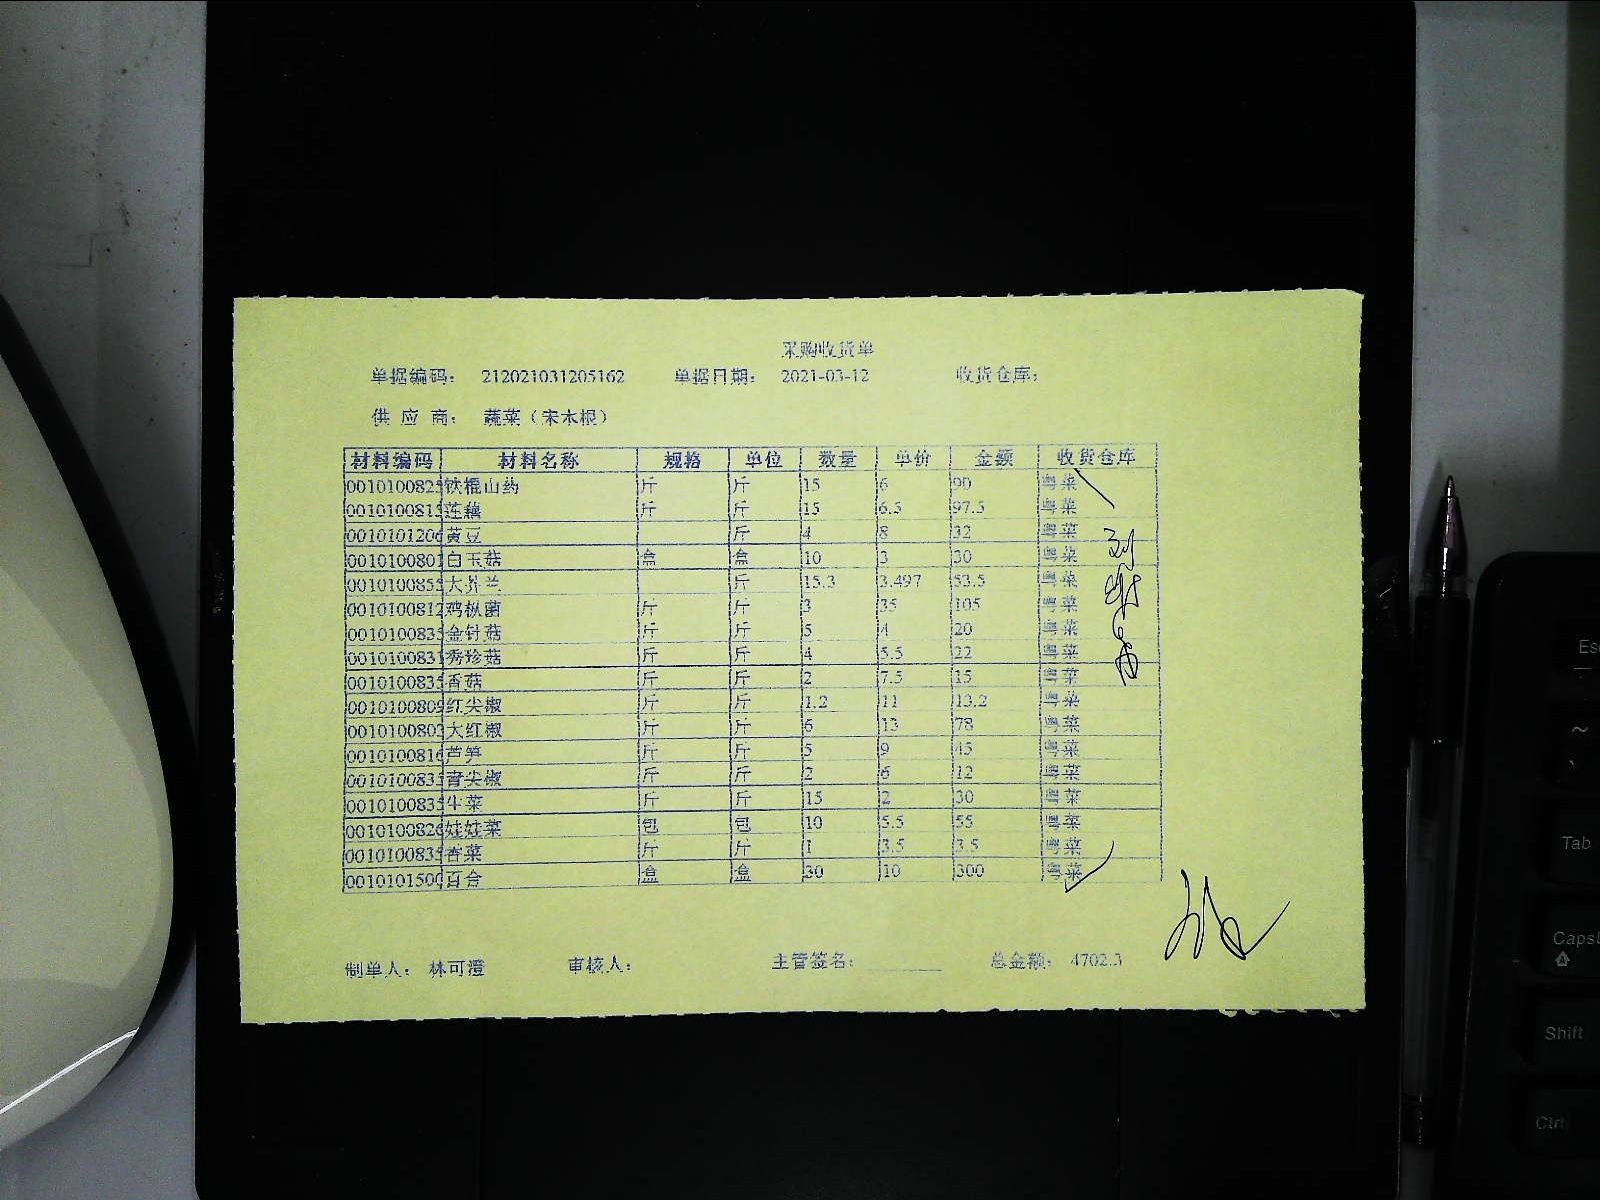 采购收货单
单据编码： 212021031205162 单据日期： 2021-03-12 收货仓库：
供 应 商： 蔬菜（宋木根）
材料编码 材料名称 规格 单位 数量 单价 金额 收货仓库
0010100825 铁棍山药 斤 斤 15 6 90 粤菜
0010100815 莲藕 斤 斤 15 6.5 97.5 粤菜
0010101206 黄豆 斤 4 8 32 粤菜
0010100801 白玉菇 盒 盒 10 3 30 粤菜
0010100855 大芥兰 斤 15.3 3.497 53.5 粤菜
0010100812 鸡枞菌 斤 斤 3 35 105 粤菜
0010100835 金针菇 斤 斤 5 4 20 粤菜
0010100831 秀珍菇 斤 斤 4 5.5 22 粤菜
0010100835 香菇 斤 斤 2 7.5 15 粤菜
0010100809 红尖椒 斤 斤 1.2 11 13.2 粤菜
0010100803 大红椒 斤 斤 6 13 78 粤菜
0010100816 芦笋 斤 斤 5 9 45 粤菜
0010100835 青尖椒 斤 斤 2 6 12 粤菜
0010100835 生菜 斤 斤 15 2 30 粤菜
0010100826 娃娃菜 包 包 10 5.5 55 粤菜
0010100835 香菜 斤 斤 1 3.5 3.5 粤菜
0010101500 百合 盒 盒 30 10 300 粤菜
制单人： 林可澄 审核人： 主管签名： 总金额： 4702.3
Esc
~
Tab
Caps
Shift
Ctrl